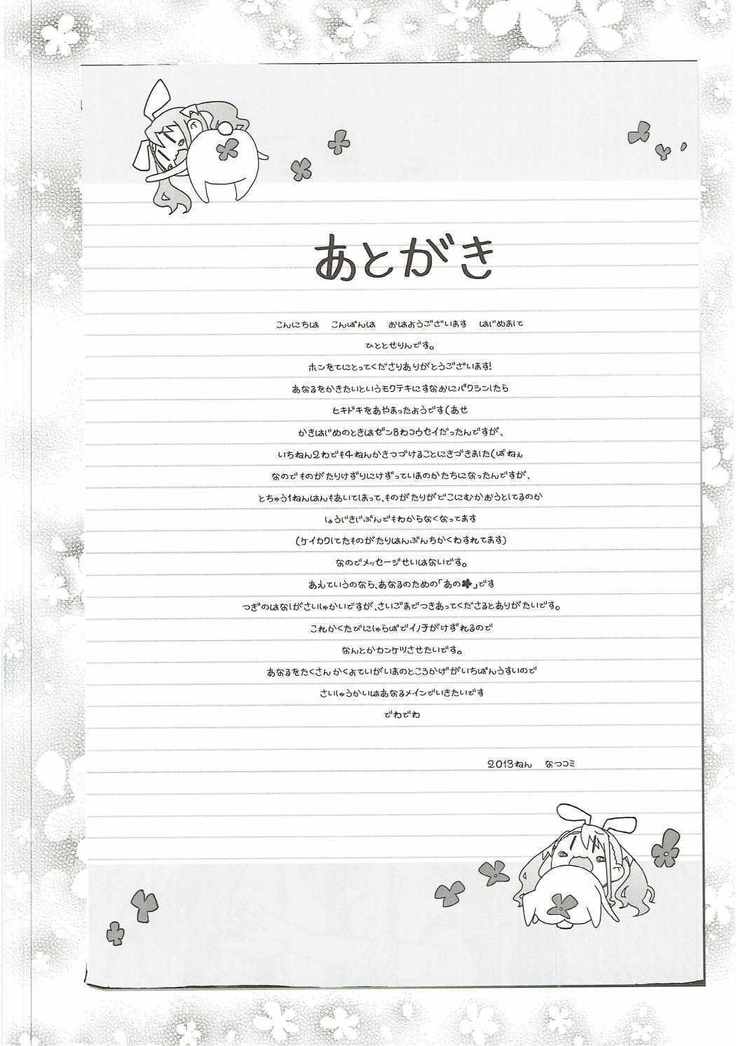 あとがき
こんにちは こんばんは おはようございます はじめまして
ひととせりんです。
ホンをてにとってくださりありがとうございます!
あなるをかきたいというモクテキにすなおにバクシンしたら
ヒキドキをあやまったようです(あせ
かきはじめのときはゼン8わコウセイだったんですが、
いちねん2わでも4ねんかきつづけることにきづきました(ばねん
なのでものがたりけずりにけずっていまのかたちになったんですが、
とちゅう1ねんはんもあいてしまって、ものがたりがどこにむかおうとしてるのか
しょうじきじぶんでもわからなくなってます
(ケイカクしてたものがたりはんぶんちかくわすれてます)
なのでメッセージせいはないです。
あえていうのなら、あなるのための「あの✤」です
つぎのはなしがさいしゅうかいですが、さいごまでつきあってくださるとありがたいです。
これかくたびにしゅらばでイノチがけずれるので
なんとかカンケツさせたいです。
あなるをたくさんかくよていがいまのところかげがいちばんうすいので
さいしゅうかいはあなるメインでいきたいです
でわでわ
2013ねん なつコミ